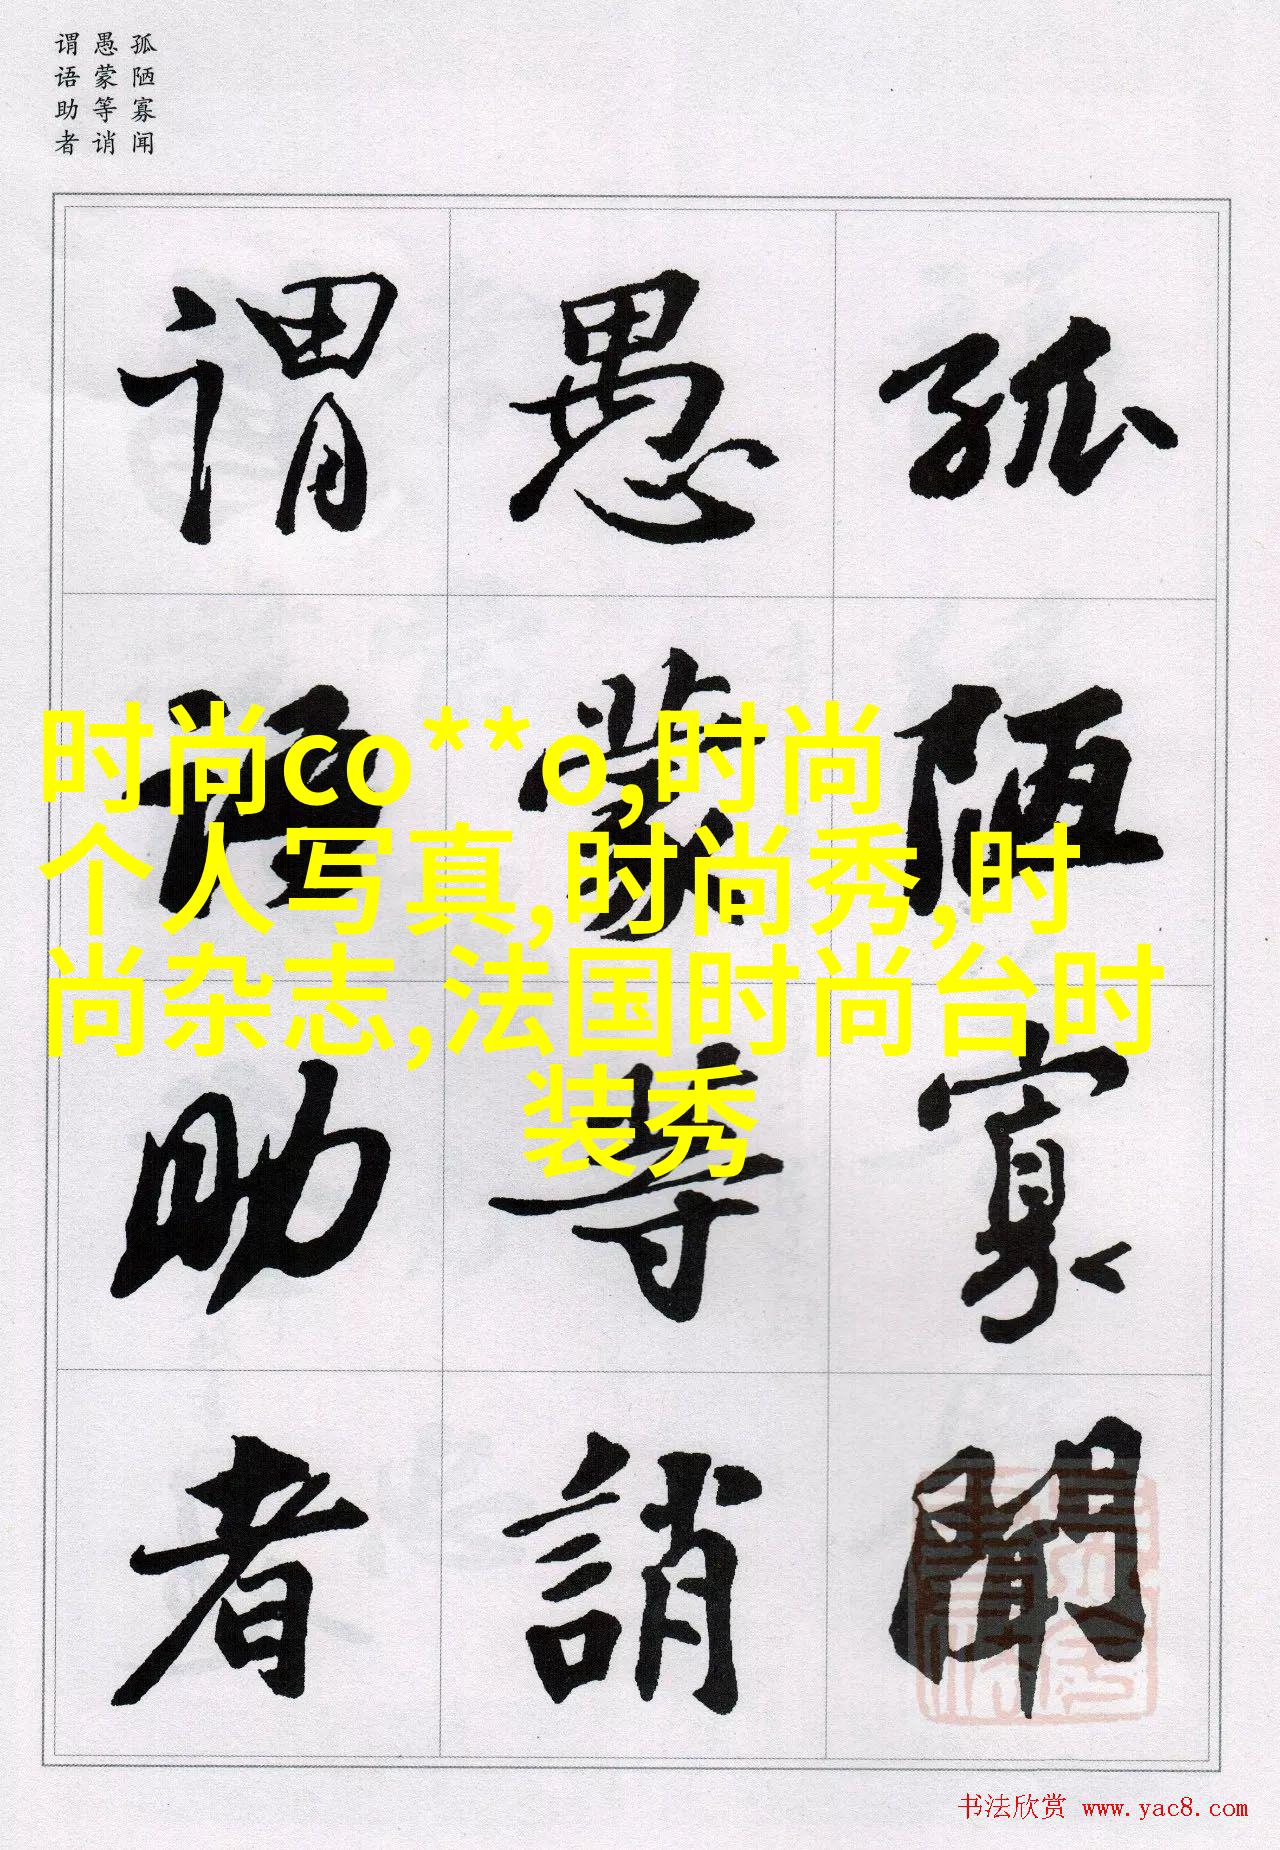 孤陋寡闻
愚蒙等诮
谓语助者
孤陋寡聞
愚蒙等誚
谓语助者
时尚co**o,时尚
个人写真,时尚秀,时
尚杂志,法国时尚台时
装秀
书法欣赏 www.yac8.com